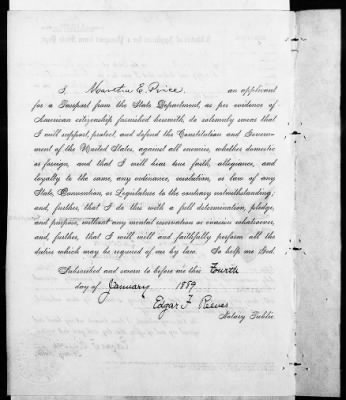 I, Martin E. Price an applicant
for a Passport from the State Department, as per evidence of
American citizenship furnished herewith, do solemnly swear that
I will support, protect, and defend the Constitution and Govern-
ment of the United States, against all enemies, whether domestic
or foreign, and that I will bear true faith, allegiance, and
loyalty to the same, any ordinance, resolution, or law of any
State, Convention, or Legislature to the contrary notwithstanding;
and, further, that I do this with a full determination, pledge,
and purpose, without any mental reservation or evasion whatsoever,
and, further, that I will well and faithfully perform all the
duties which may be required of me by law. So help me God.
Subscribed and sworn to before me this Fourth
day of January 1889
Edgar F. Reeves
Notary Public